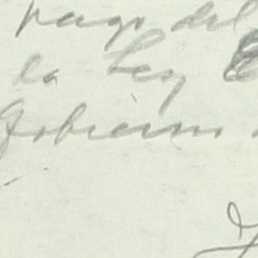 pago del
la Ley
Gobierno